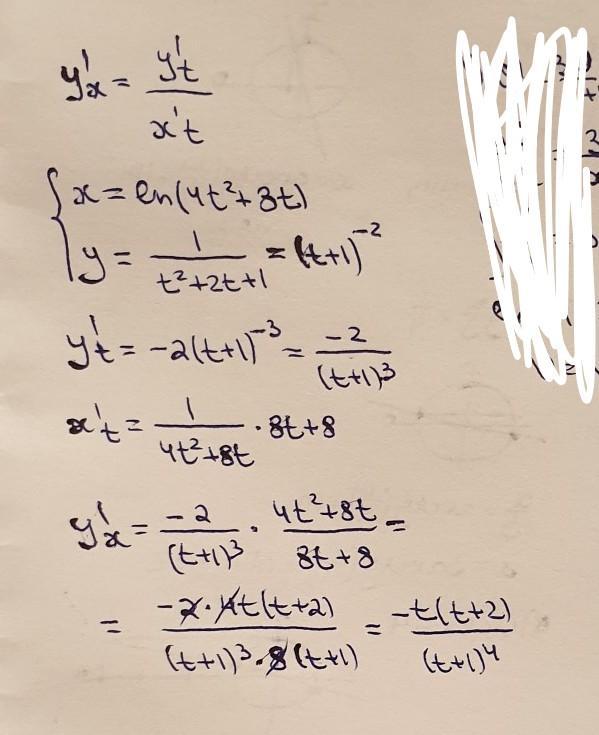 y'x = y't / x't
{ x = ln(4t²+8t)
y = 1 / t²+2t+1 = (t+1)⁻²
y't = -2(t+1)⁻³ = -2 / (t+1)³
x't = 1 / 4t²+8t · 8t+8
y'x = -2 / (t+1)³ · 4t²+8t / 8t+8 =
= -2·4t(t+2) / (t+1)³·8(t+1) = -t(t+2) / (t+1)⁴